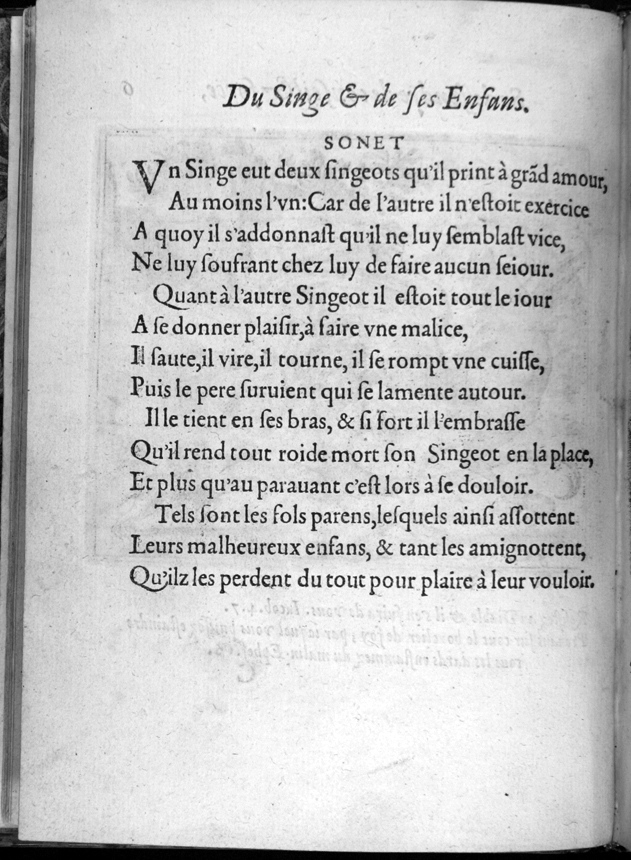 Du Singe & de ſes Enfans.
SONET
Vn Singe eut deux ſingeots qu'il print à grãd amour,
Au moins l'vn:Car de l'autre il n'eſtoit exercice
A quoy il s'addonnaſt qu'il ne luy ſemblaſt vice,
Ne luy ſoufrant chez luy de faire aucun ſeiour.
Quant à l'autre Singeot il eſtoit tout le iour
A ſe donner plaiſir,à faire vne malice,
Il ſaute,il vire,il tourne, il ſe rompt vne cuiſſe,
Puis le pere ſuruient qui ſe lamente autour.
Il le tient en ſes bras, & ſi fort il l'embraſſe
Qu'il rend tout roide mort ſon Singeot en la place,
Et plus qu'au parauant c'eſt lors à ſe douloir.
Tels ſont les fols parens,leſquels ainſi aſſottent
Leurs malheureux enfans, & tant les amignottent,
Qu'ilz les perdent du tout pour plaire à leur vouloir.